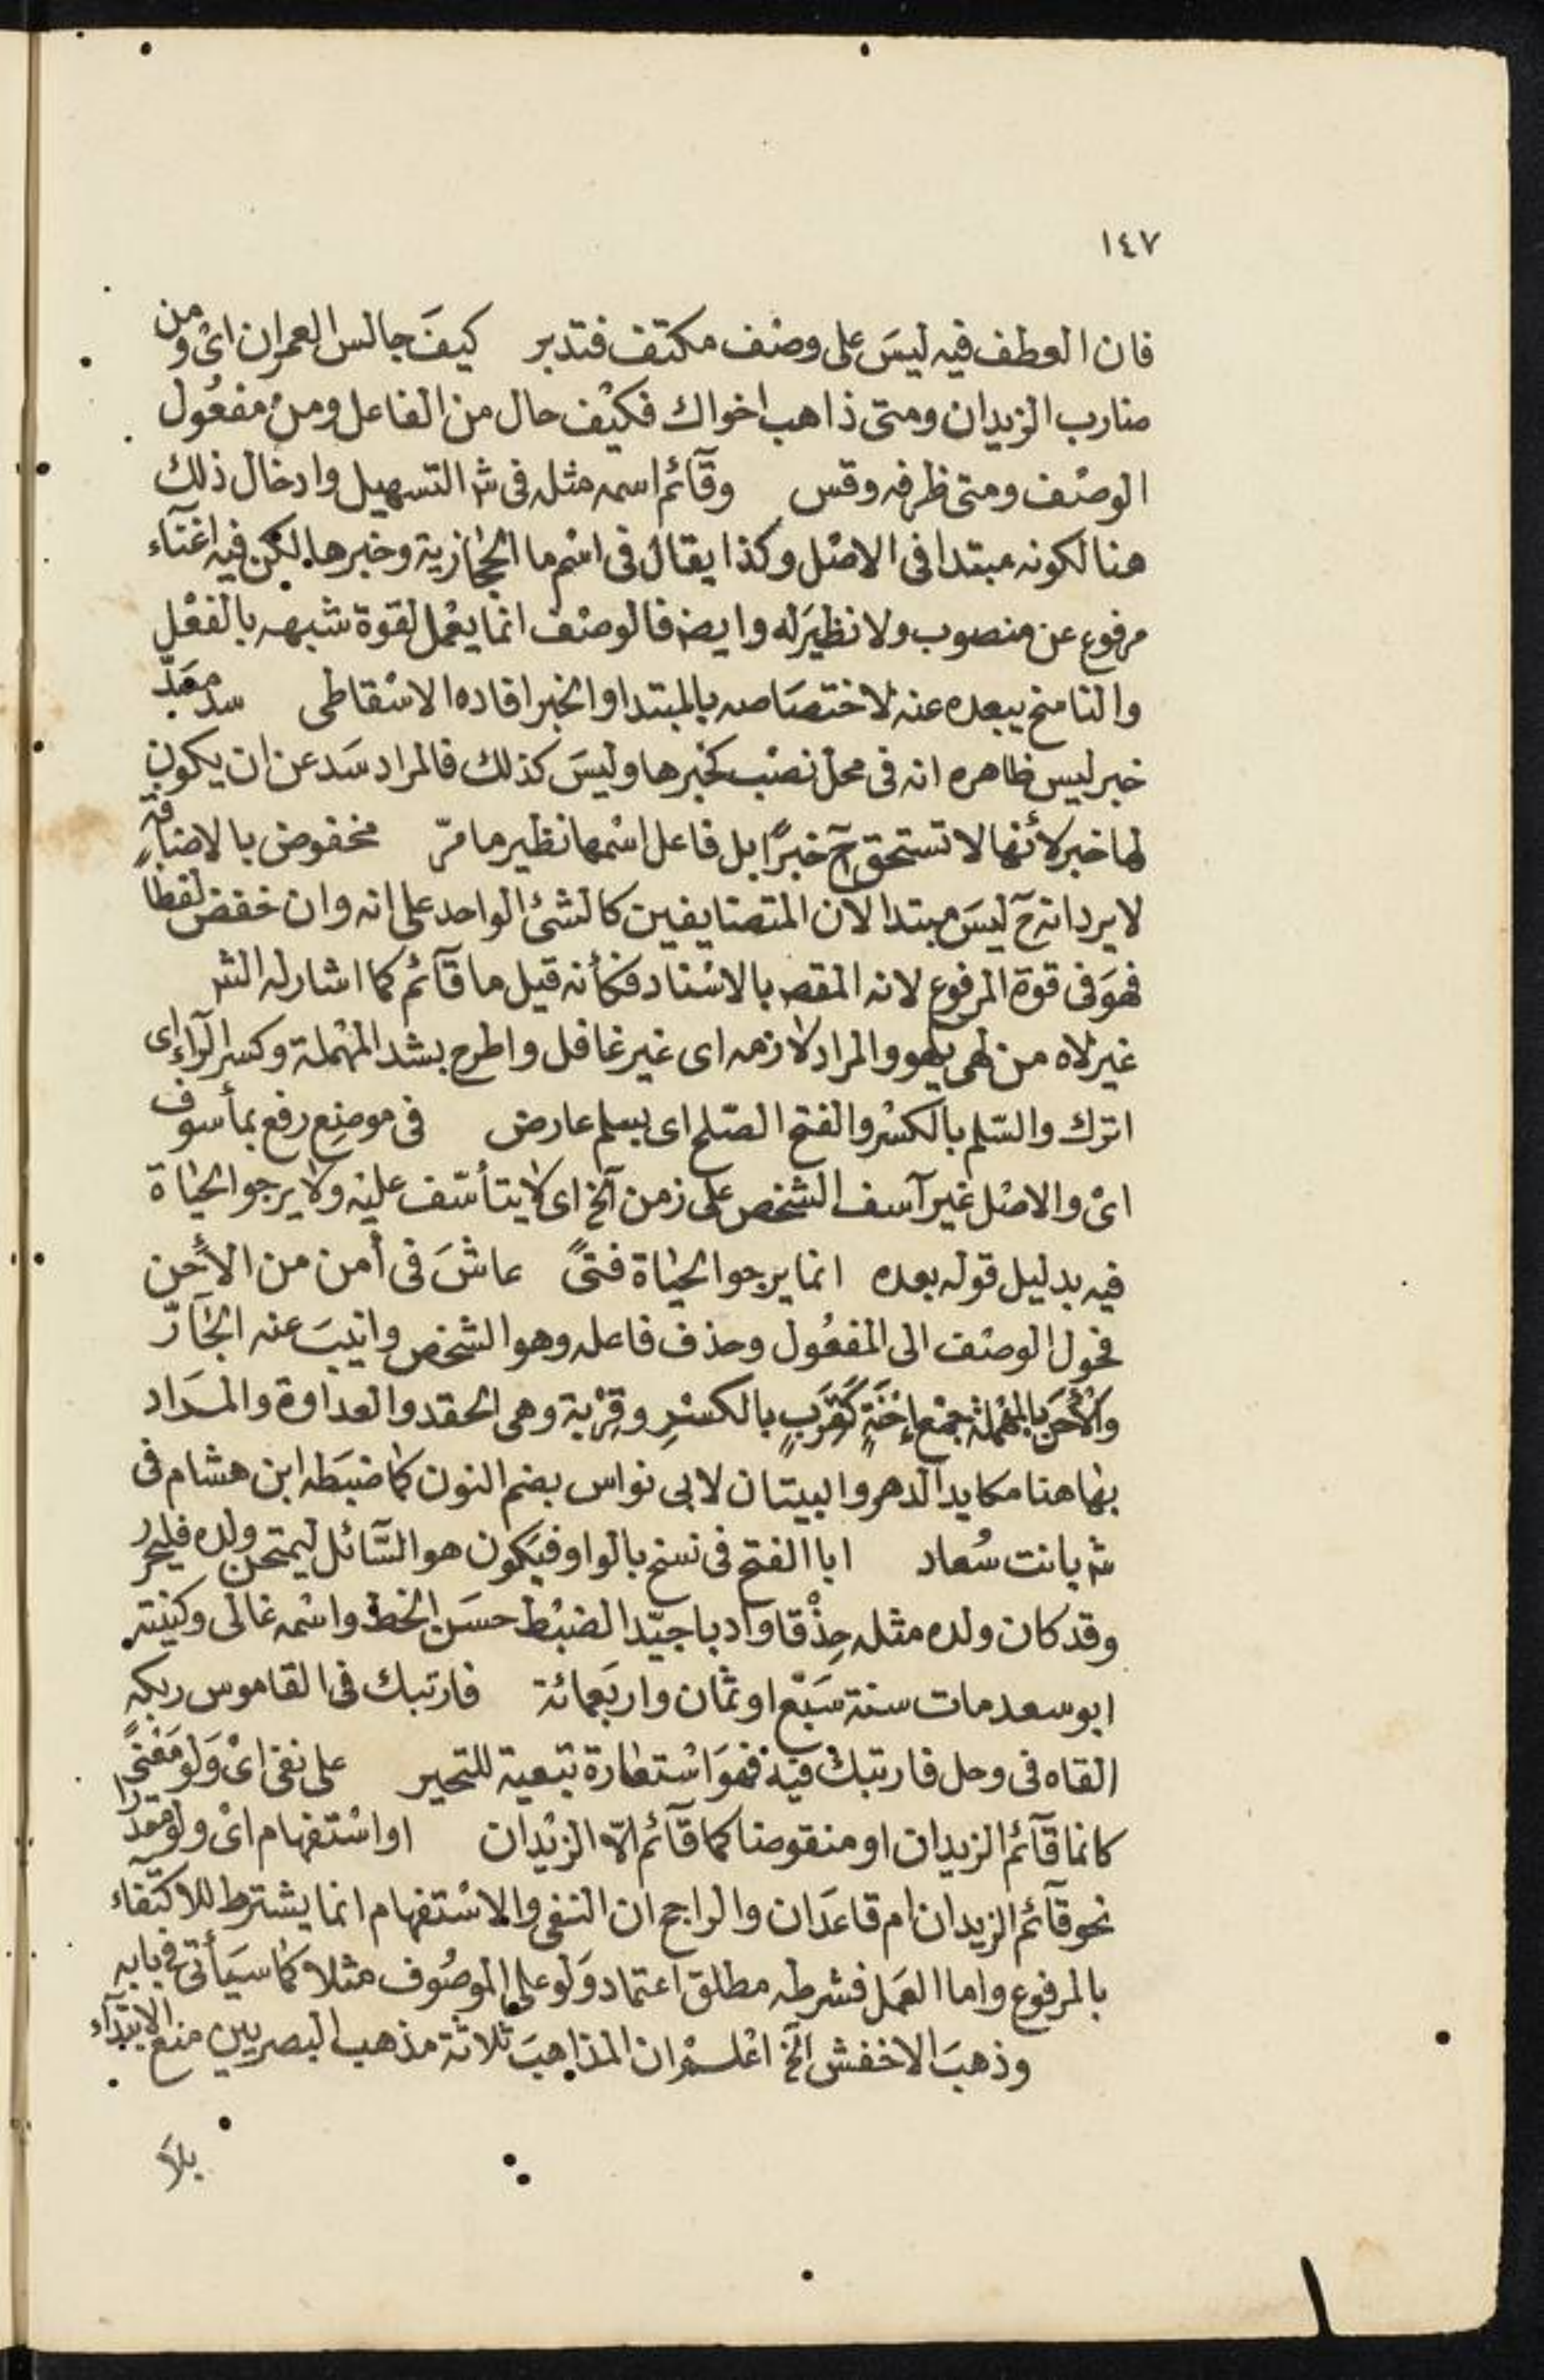 ١٤٧
فان العطف فيه ليسَ على وصْف مكتف فتدبر كيفَ جالس العمران اىْ ومن
ضارب الزيدان ومتى ذاهب اخواك فكيْف حال من الفاعل ومنْ مفعُول
الوصْف ومتى ظرفه وقس وقآئم اسمه مثله فى شر التسهيل وادخال ذلك
هنا لكونه مبتدا فى الاصْل وكذا يقال فى اسْم ما الحجازية وخبرها لكن فيه اغنآء
مرفوع عن منصوب ولا نظيَر له وايضا فالوصْف انما يعْمل لقوة شبهه بالفعْل
والناسخ يبعده عنه لاختصَاصه بالمبتدا والخبر افاده الاسْقاطى سدّ مسَدّ
خبر ليس ظاهره انه فى محل نصْب كخبرها وليسَ كذلك فالمراد سَد عن ان يكون
لها خبر لأنها لا تستحق ح خبرًا بل فاعل اسْمها نظير ما مرّ مخفوض بالاضافة
لا يرد انه ح ليسَ مبتدا لان المتضايفين كالشئ الواحد على انه وان خفض لفظاً
فهوَ فى قوة المرفوع لانه المقصـ بالاسْناد فكأنه قيل ما قآئم كما اشار له الشر
غير لاه من لهى يلهو والمراد لازمه اى غير غافل واطرح بشد المهْملة وكسر الرآء اى
اترك والسّلم بالكسْر والفتح الصّلح اى بسلم عارض فى موضِع رفع بمأسوف
اىْ والاصْل غير آسف الشخص على زمن الخ اى لا يتأسّف عليْه ولا يرجو الحيَاة
فيه بدليل قوله بعده انما يرجو الحيَاة فتىً عاشَ فى أمن من الأحن
فحول الوصْف الى المفعُول وحذف فاعله وهو الشخص وانيبَ عنه الجَآرّ
والأحَن بالمهْملة جمْع إحْنَةٍ كقرَبٍ بالكسْرِ وقِرْبة وهى الحقد والعداوة والمـرَاد
بها هنا مكايد الدهر والبيتان لابى نواس بضم النون كما ضبَطه ابن هشام فى
شر بانت سُعاد ابا الفتح فى نسخ بالواو فيَكون هو السّآئل ليمتحن ولده فليحرر
وقد كان ولده مثله حِذْقا وأدبا جيّد الضبْط حسَن الخط واسْمه غالى وكنيْته
ابو سعد مات سنة سَبْع او ثمان واربَعمائة فارتبك فى القاموس ربكه
القاه فى وحل فارتبك فيْه فهوَ اسْتعارة تبَعية للتحير على نفى اىْ وَلو مَعْنىً
كانما قآئم الزيدان او منقوضا كما قآئم الّا الزيْدان او اسْتفهام اىْ ولوْ مقدّرا
نحو قآئم الزيدان ام قاعدَان والراجح ان النفى والاسْتفهام انما يشترط للاكتفاء
بالمرفوع واما العمَل فشرطه مطلق اعتماد وَلو على الموصُوف مثلا كما سيَأتى فى بابه
وذهبَ الاخفش الخ اعْلـمْ ان المذاهبَ ثلاثة مذهب البصريين منع الابتدآء
بلا